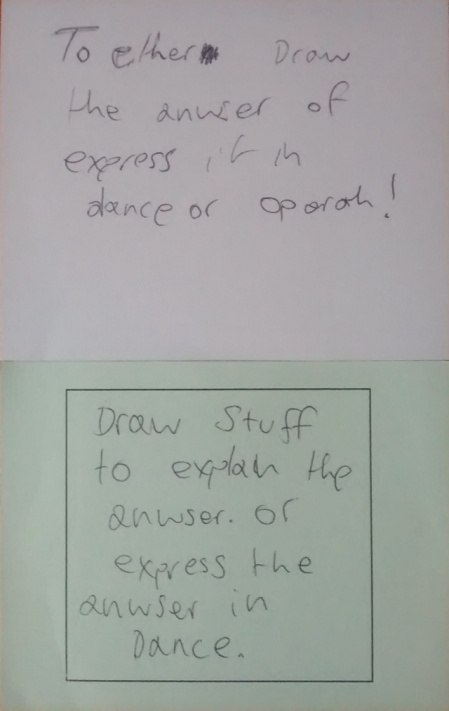 To ether Draw
the anwser of
express it in
dance or oparah!
Draw Stuff
to explain the
anwser. or
express the
anwser in
Dance.